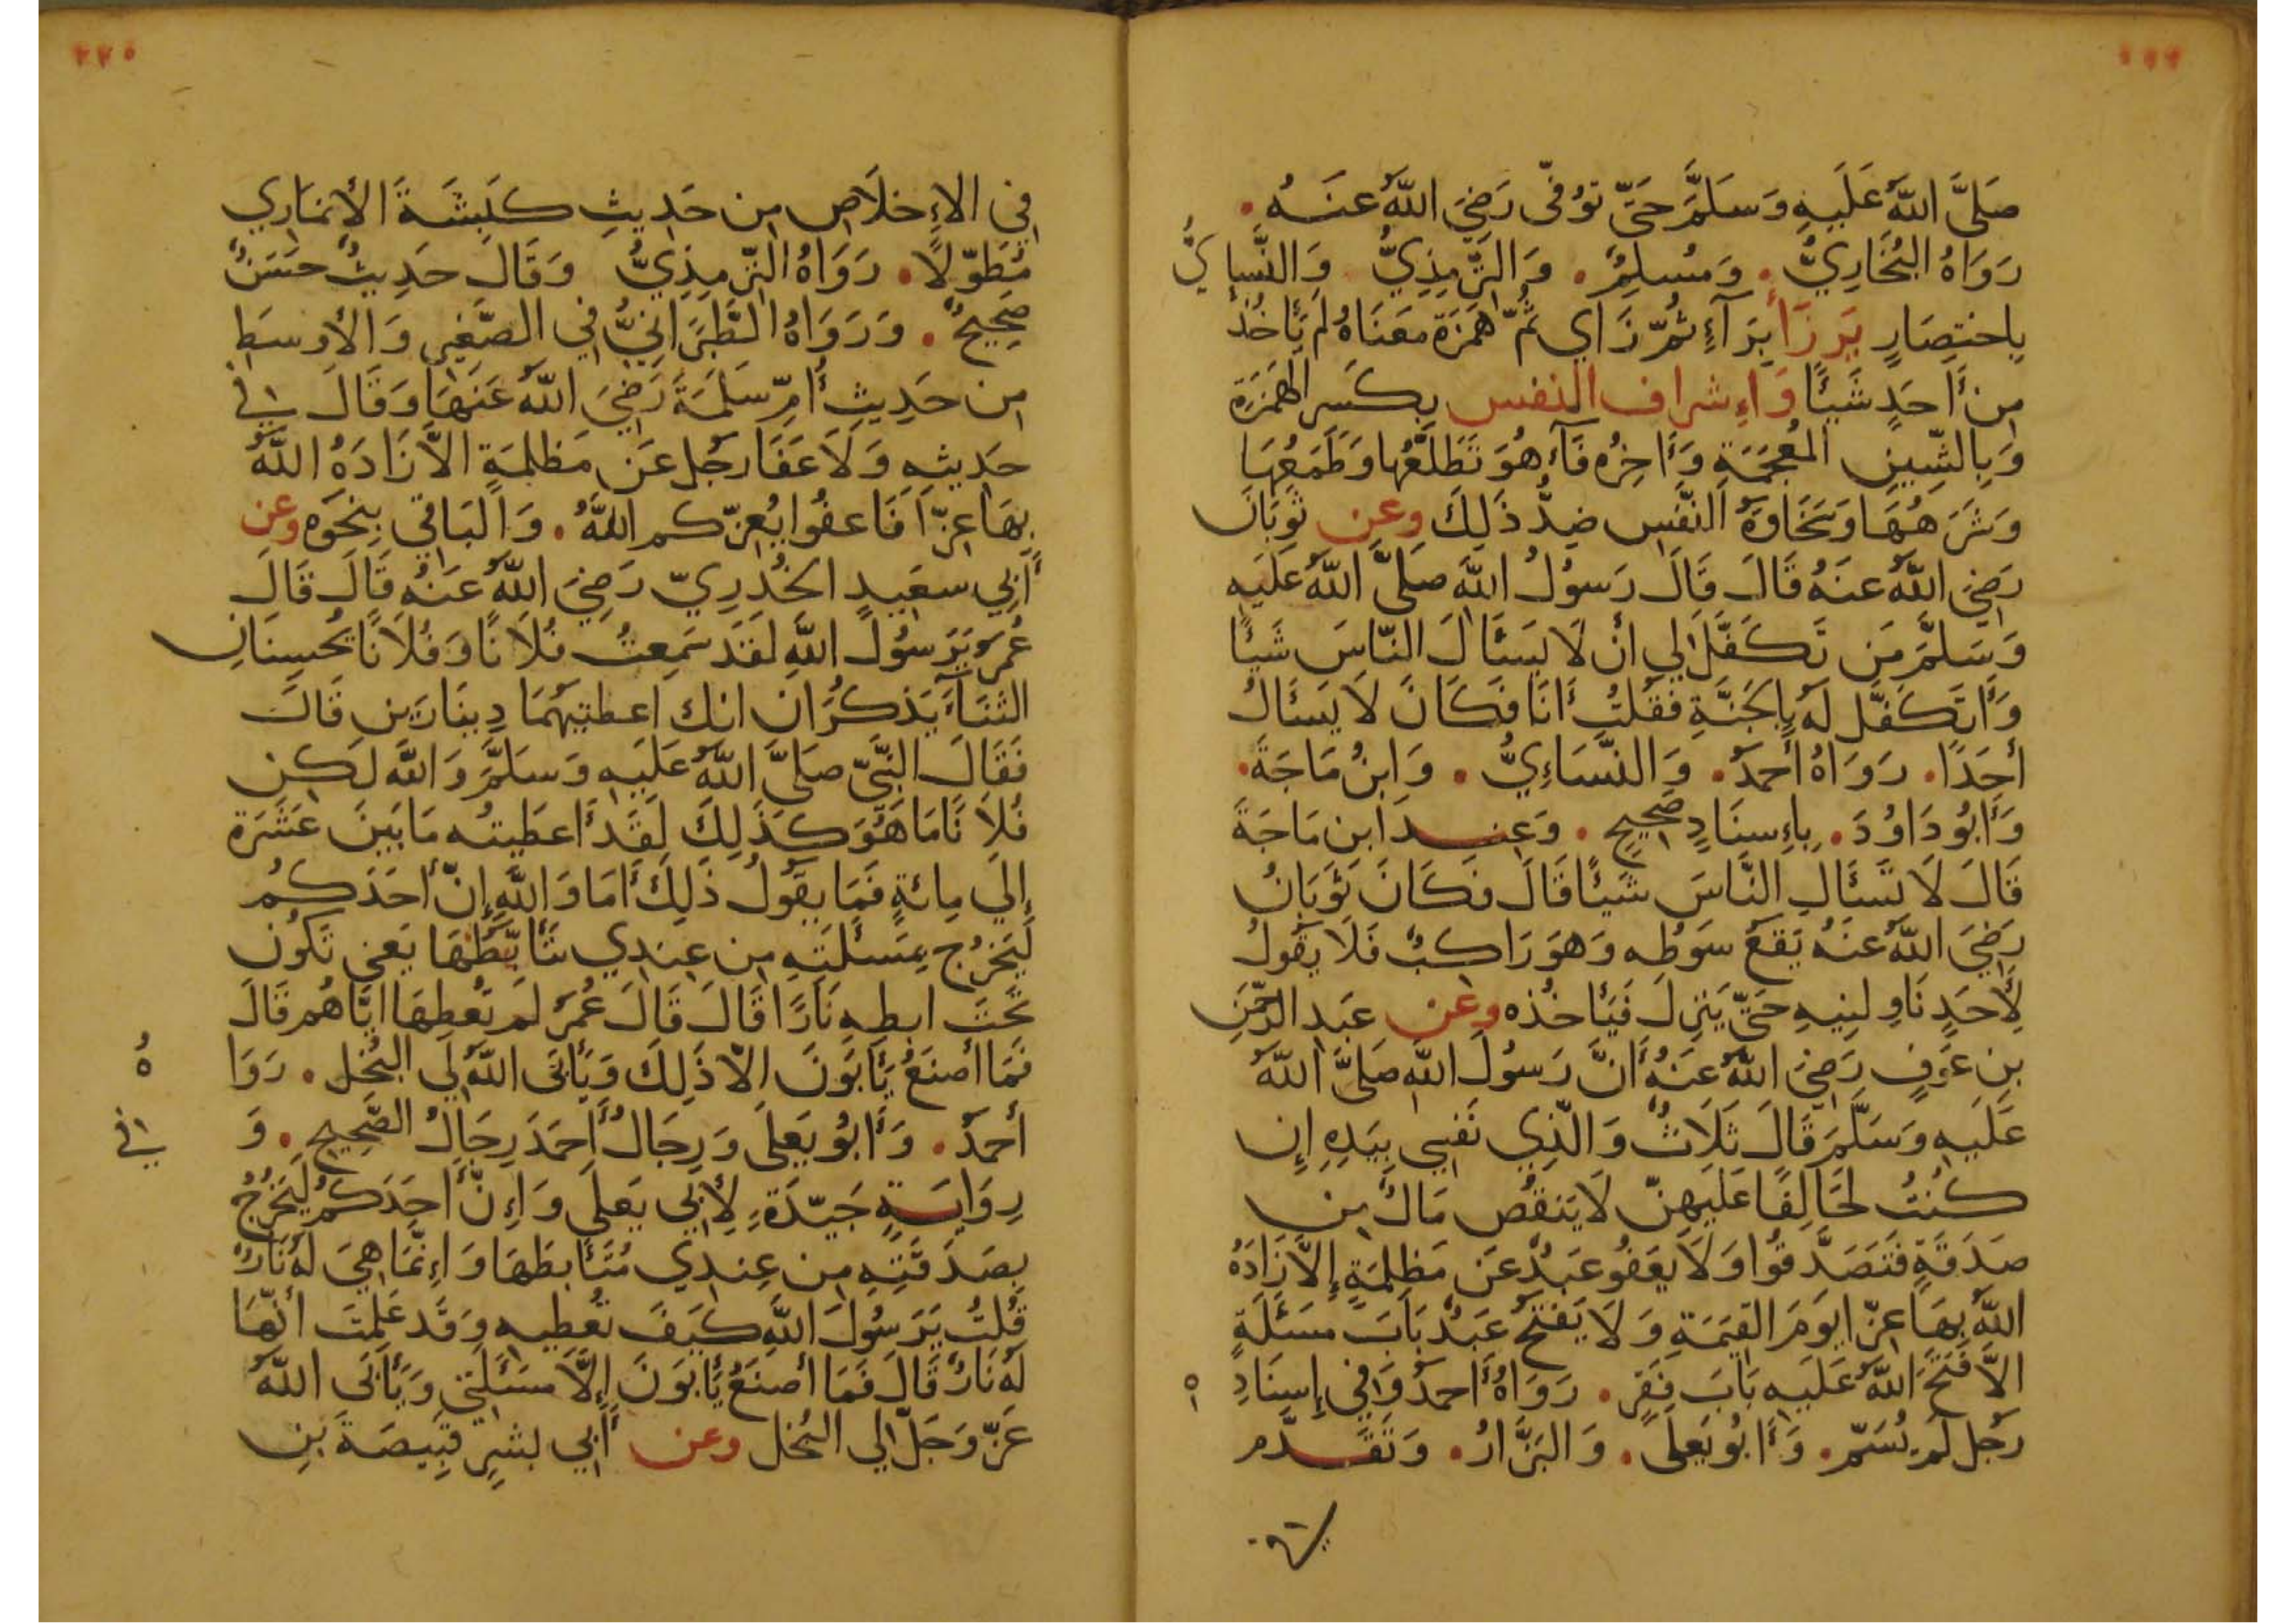 صَلَّى اللَّهُ عَلَيْهِ وَسَلَّمَ حَتَّى تُوُفِّى رَضِيَ اللَّهُ عَنْهُ .
رَوَاهُ البُخَارِيُّ . وَمُسْلِمٌ . وَالتِّرْمِذِيُّ وَالنَّسَاءِيُّ
بِاخْتِصَارٍ يَرْزَأْ بِرَآءٍ ثُمَّ زَاي ثُمَّ هَمْزَة مَعْنَاهُ لَمْ يَأْخُذْ
مِنْ أَحَدٍ شَيْئًا وَإِشْرَاف النفس بِكَسْرِ الهَمْزَةِ
وَبِالشِّينِ المُعْجَمَةِ وَأَخِرُه فَآءٌ هُوَ تَطَلُّعُهَا وَطَمَعُهَا
وَشَرَهُهَا وَسَخَاوَةُ النَّفْسِ ضِدُّ ذَلِكَ وعن ثَوْبَانَ
رَضِيَ اللَّهُ عَنْهُ قَالَ قَالَ رَسُولُ اللَّهِ صَلَّى اللَّهُ عَلَيْهِ
وَسَلَّمَ مَنْ تَكَفَّلَ لِي أَنْ لَا يَسْئَالَ النَّاسَ شَيْئًا
وَأَتَكَفَّل لَهُ بِالجَنَّةِ فَقُلْتُ أَنَا فَكَانَ لَا يَسْئَالُ
أَحَدًا . رَوَاهُ أَحْمَدُ . وَالنَّسَاءِيُّ . وَابْنُ مَاجَةَ .
وَأَبُو دَاوُدَ . بِإِسْنَادٍ صَحِيحٍ . وَعِنْدَ ابن مَاجَةَ
قَالَ لَا تَسْئَالِ النَّاسَ شَيْئًا قَالَ فَكَانَ ثَوْبَانُ
رَضِيَ اللَّهُ عَنْهُ يَقَعُ سَوْطُه وَهُوَ رَاكِبٌ فَلَا يَقُولُ
لِأَحَدٍ نَاوِلْنِيهِ حَتَّى يَنْزِلَ فَيَأْخُذه وعن عَبْدِ الرَّحْمَنِ
بْنِ عَوْفٍ رَضِيَ اللَّهُ عَنْهُ أَنَّ رَسُولَ اللَّهِ صَلَّى اللَّهُ
عَلَيْهِ وَسَلَّمَ قَالَ ثَلَاثٌ وَالَّذِي نَفْسِي بِيَدِهِ إِن
كُنْتُ لَحَالِفًا عَلَيْهِنَّ لَا يَنْقُصُ مَالٌ مِن
صَدَقَةٍ فَتَصَدَّقُوا وَلَا يَعْفُو عَبْدٌ عَنْ مَظْلِمَةٍ إِلَّا زَادَهُ
اللَّهُ بِهَا عِزًّا يَوْمَ القِيَمَةِ وَلَا يَفْتَحُ عَبْدٌ بَابَ مَسْئَلَةٍ
الَّا فَتَحَ اللَّهُ عَلَيْهِ بَابَ فَقْرٍ . رَوَاهُ أَحْمَدُ وَفِي إِسْنَادِهِ
رَجُل لَمْ يُسَمّ . وَأَبُو يَعْلَى . وَالبَزَّارُ . وَتَقَدَّم
٢٢٠
فِي الإِخْلَاصِ مِن حَدِيثِ كَبْشَةَ الأَنمَارِي
مُطَوَّلًا . رَوَاهُ التِّرْمِذِيُّ وَقَالَ حَدِيثٌ حَسَنٌ
صَحِيحٌ . وَرَوَاهُ الطَّبَرَانِيُّ فِي الصَّغِيرِ وَالأَوْسَطِ
مِن حَدِيثِ أُمِّ سَلَمَةَ رَضِيَ اللَّهُ عَنْهَا وَقَالَ فِي
حَدِيثِهِ وَلَا عَفَا رَجُل عَنْ مَظْلِمَةٍ الَّا زَادَهُ اللَّهُ
بِهَا عِزًّا فَاعْفُوا يُعِزّكم اللَّهُ . وَالبَاقِي بِنَحْوِه وعن
أَبِي سَعِيدٍ الخُدْرِيّ رَضِيَ اللَّهُ عَنْهُ قَالَ قَالَ
عُمَرُ يَرَسُولَ اللَّهِ لَقَدْ سَمِعْتُ فُلَانًا وَفُلَانًا يُحْسِنَانِ
الثَنَآءَ يَذْكُرَانِ انك أعطيتهُمَا دِينَارَيْنِ قَالَ
فَقَالَ النَّبِيّ صَلَّى اللَّهُ عَلَيْهِ وَسَلَّمَ وَاللَّهِ لَكِن
فُلَانًا مَا هُوَ كَذَلِكَ لَقَدْ أَعطَيتُه مَا بَيْنَ عَشَرَة
إِلَى مِائَةٍ فَمَا يَقُولُ ذَلِكَ أَمَا وَاللَّهِ إِنَّ أَحَدَكُم
لَيَخْرُج بِمَسْئَلَتِهِ مِن عِنْدِي يَتَأَبَّطُهَا يَعنِي تَكُونُ
تَحْتَ ابطِهِ نَارًا قَالَ قَالَ عُمَرُ لَمْ تُعْطِهَا ايَّاهُم قَالَ
فَمَا أَصْنَعُ يَأْبَوْنَ الَّا ذَلِكَ وَيَأْبَى اللَّهُ لِي البُخْل . رَوَاهُ
أَحْمَدُ . وَأَبُو يَعْلَى وَرِجَالُ أَحْمَدَ رِجَالُ الصَّحِيحِ . وَفِي
رِوَايَةٍ جَيّدَةٍ لِأَبِي يَعْلَى وَإِنَّ أَحَدَكُمْ لَيَخْرُجُ
بِصَدَقَتِهِ مِن عِنْدِي مُتَأَبطَهَا وَإِنَّمَا هِيَ لَهُ نَارٌ
قُلْتُ يَرَسُولَ اللَّهِ كَيْفَ تُعْطِيهِ وَقَدْ عَلِمْتَ أَنَّهَا
لَهُ نَارٌ قَالَ فَمَا أَصْنَعُ يَأْبَوْنَ إِلَّا مَسْئَلَتِي وَيَأْبَى اللَّهُ
عَزَّ وَجَلَّ لِي البُخْل وعن أَبِي بِشْرٍ قَبِيصَةَ بْنِ